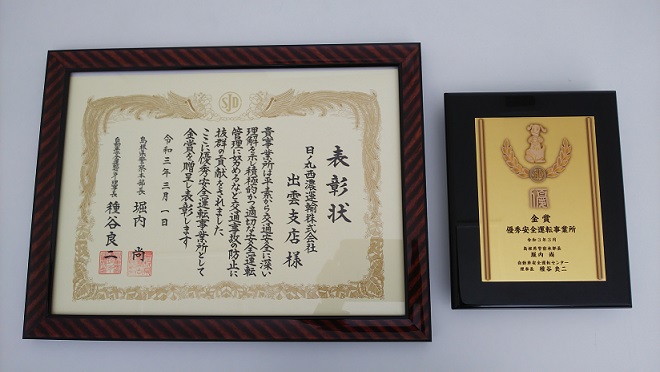 SJD
表彰状
日ノ丸西濃運輸株式会社
出雲支店様
貴事業所は平素から交通安全に深い
理解を示し積極的かつ適切な安全運転
管理に努めるなど交通事故の防止に
抜群の貢献をされました
ここに優秀安全運転事業所として
金賞を贈呈し表彰します
令和三年三月一日
島根県警察本部長 堀内 尚
自動車安全運転センター理事長 種谷良二
金賞
優秀安全運転事業所
令和3年3月
島根県警察本部長
堀内 尚
自動車安全運転センター
理事長 種谷良二